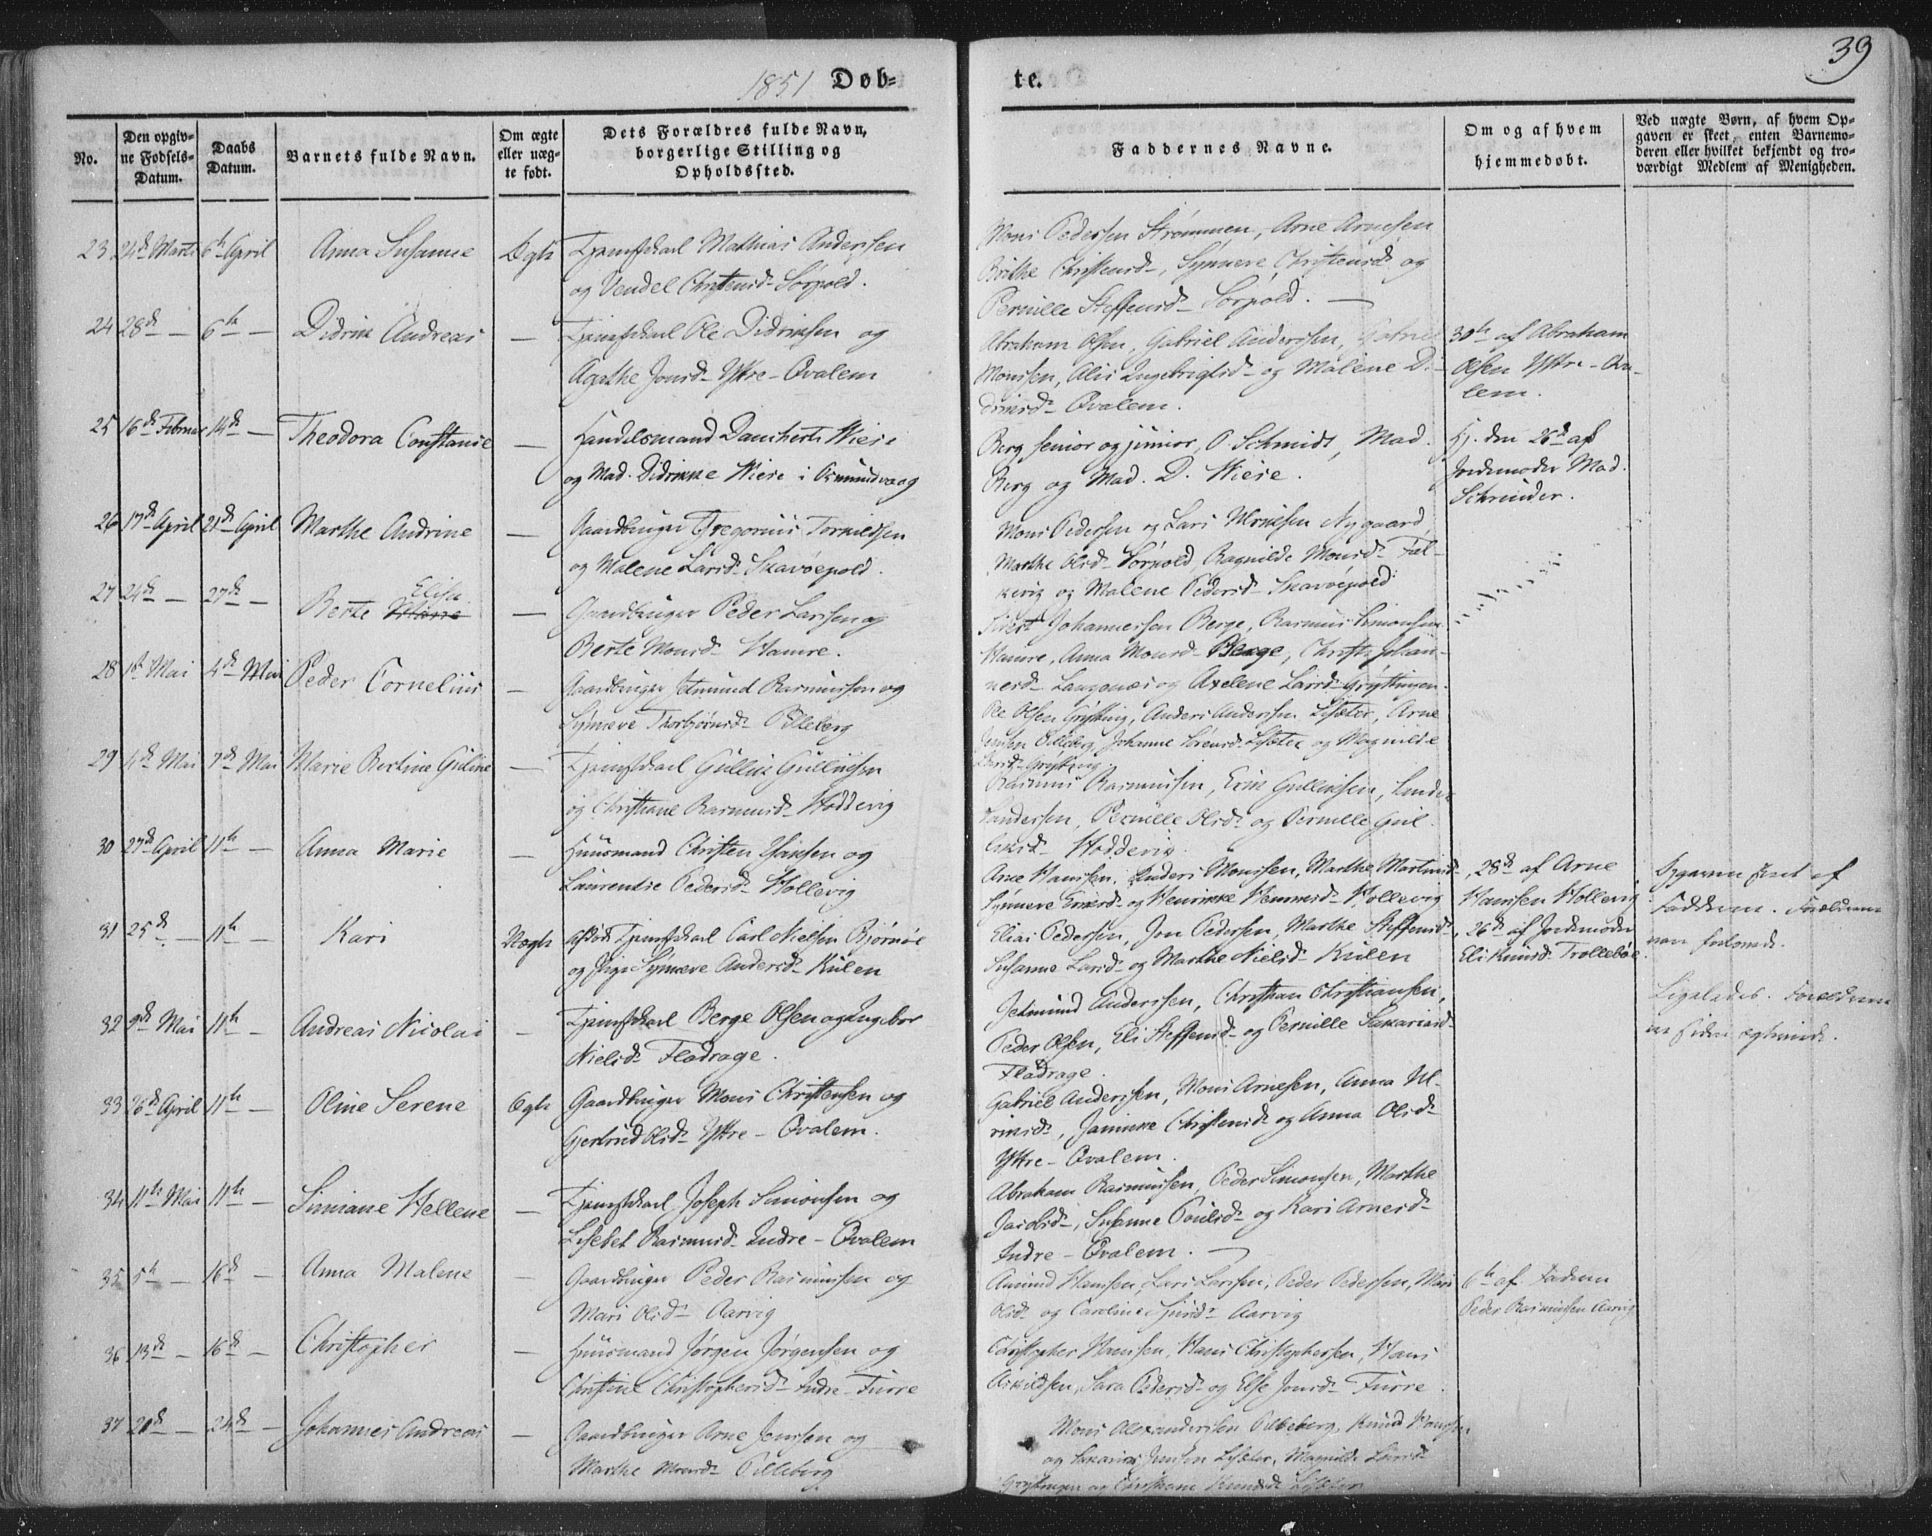 39
1851 Døb-
te.
No.
Den opgiv-
ne Fødsels-
Datum.
Daabs
Datum.
Barnets fulde Navn.
Om ægte
eller uæg-
te født.
Dets Forældres fulde Navn,
borgerlige Stilling og
Opholdssted.
Faddernes Navne.
Om og af hvem
hjemmedøbt.
Ved uægte Børn, af hvem Op-
gaven er skeet, enten Barnemo-
deren eller hvilket bekjendt og tro-
værdigt Medlem af Menigheden.
23 24de Marts 6te April Anna Susanne Ægte Tjenestekarl Mathias Anderssen
og Vendel Christensd. Sørpold.
Mons Pederssen Strømmen, Arne Arnessen
Birthe Christensd., Synneve Christensd. og
Pernille Steffensd. Sørpold. —
24 28de — 6te — Didrik Andreas — Tjenestekarl Ole Didriksen og
Agathe Jonsd. Yttre-Qvalem
Abraham Olsen, Gabriel Anderssen,
Monssen, Alis Ingebrigtsd. og Malene Di-
driksd. Qvalem.
30te af Abraham
Olsen Yttre-Qva-
lem.
25 16de Februar 14de — Theodora Constanse — Handelsmand Wiese
og Mad. Didrikke Wiese i Osmundvaag
Berg senior og junior, O. Schmidt, Mad.
Berg og Mad. D. Wiese.
Hj. den 26de af
Jordemoder Mad.
Schrøuder.
26 17de April 21de April Marthe Andrine — Gaardbruger Gregorius Torkildsen
og Malene Larsd. Skavøepold.
Mons Pederssen og Lars Ulriksen Nygaard,
Marthe Olsd. Sørpold, Ragnilde Monsd. Tal-
kevig og Malene Pedersd. Skavøepold
27 24de — 27de — Berte Elisa — Gaardbruger Peder Larssen og
Berte Monsd. Hamre.
Sivert Johannessen Berge, Rasmus Simonsen
Hamre, Anna Monsd. Berge, Christi Johan-
nesd. Langenæs og Axelene Larsd. Grytingen.
28 1ste Mai 4de Mai Peder Cornelius — Gaardbruger Jetmund Rasmussen og
Synneve Thorbjørnsd. Pilleberg
Ole Olsen Gryting, Anders Anderssen Lisæter, Arne
Jenssen Pilleberg, Johanne Sørensd. Lisæter og Magnilde
Larsd. Gryting.
29 4de Mai 7de Mai Marie Bertine Guline — Tjenestekarl Gullik Gulliksen
og Christiane Rasmusd. Hoddevig
Rasmus Rasmussen, Erik Gulliksen, Sander
Sandersen, Pernille Olsd. og Pernille Gul-
liksd. Hoddevig
30 27de April 11te — Anna Marie — Huusmand Christen Hansen og
Laurentse Pedersd. Hollevig
Arne Hanssen, Anders Monssen, Marthe Martinsd.,
Synneve Eriksd. og Henrikke Hemmisd. Hollevig
28de af Arne
Hanssen Hollevig
31 25de — 11te — Kari Uægte Afdøde Tjenestekarl Carl Nielsen Bjørnøe
og Pige Synneve Andersd. Kulen
Elias Pederssen, Jon Pederssen, Marthe Steffensd.,
Susanne Larsd. og Marthe Nielsd. Kulen
26de af Jordemoder
Eli Knutsd. Trollebøe.
Opgaven skeet af
Fadderne. Forældrene
vare forlovede.
32 9de Mai 11te — Andreas Nicolai — Tjenestekarl Berge Olsen og Ingebor
Nielsd. Flodrage.
Jetmund Anderssen, Christian Christianssen,
Peder Olsen, Eli Steffensd. og Pernille Sakariasd.
Flodrage.
Ligeledes. Forældrene
ere siden ægteviede.
33 26de April 11te — Oline Serene Ægte Gaardbruger Mons Christenssen og
Gjertrud Olsd. Yttre-Qvalem.
Gabriel Anderssen, Mons Arnessen, Anna Ul-
riksd., Jannikke Christensd. og Anna Olsd.
Yttre-Qvalem.
34 11te Mai 11te — Simiane Hellene — Tjenestekarl Joseph Simonssen og
Lisebet Rasmusd. Indre-Qvalem
Abraham Rasmussen, Peder Simonssen, Marthe
Jacobsd., Susanne Poulsd. og Kari Arnesd.
Indre-Qvalem. —
35 5te — 16de — Anna Malene — Gaardbruger Peder Rasmussen og
Mari Olsd. Aarvig
Amund Hanssen, Lars Larssen, Peder Pederssen, Mari
Olsd. og Caroline Sjursd. Aarvig
6te af Faderen
Peder Rasmussen Aarvig
36 13de — 16de — Christopher — Huusmand Jørgen Jørgenssen og
Christine Christophersd. Indre-Furre
Christopher Hanssen, Hans Christopherssen, Hans
Askildsen, Sara Pedersd. og Else Jonsd. Furre.
37 20de — 24de — Johannes Andreas — Gaardbruger Arne Jenssen og
Marthe Monsd. Pilleberg
Mons Alexanderssen Pilleberg, Knud Hanssen
og Sakarias Jenssen Lisæter, Magnilde Larsd.
Grytingen og Christiane Knudsd. Lisæter